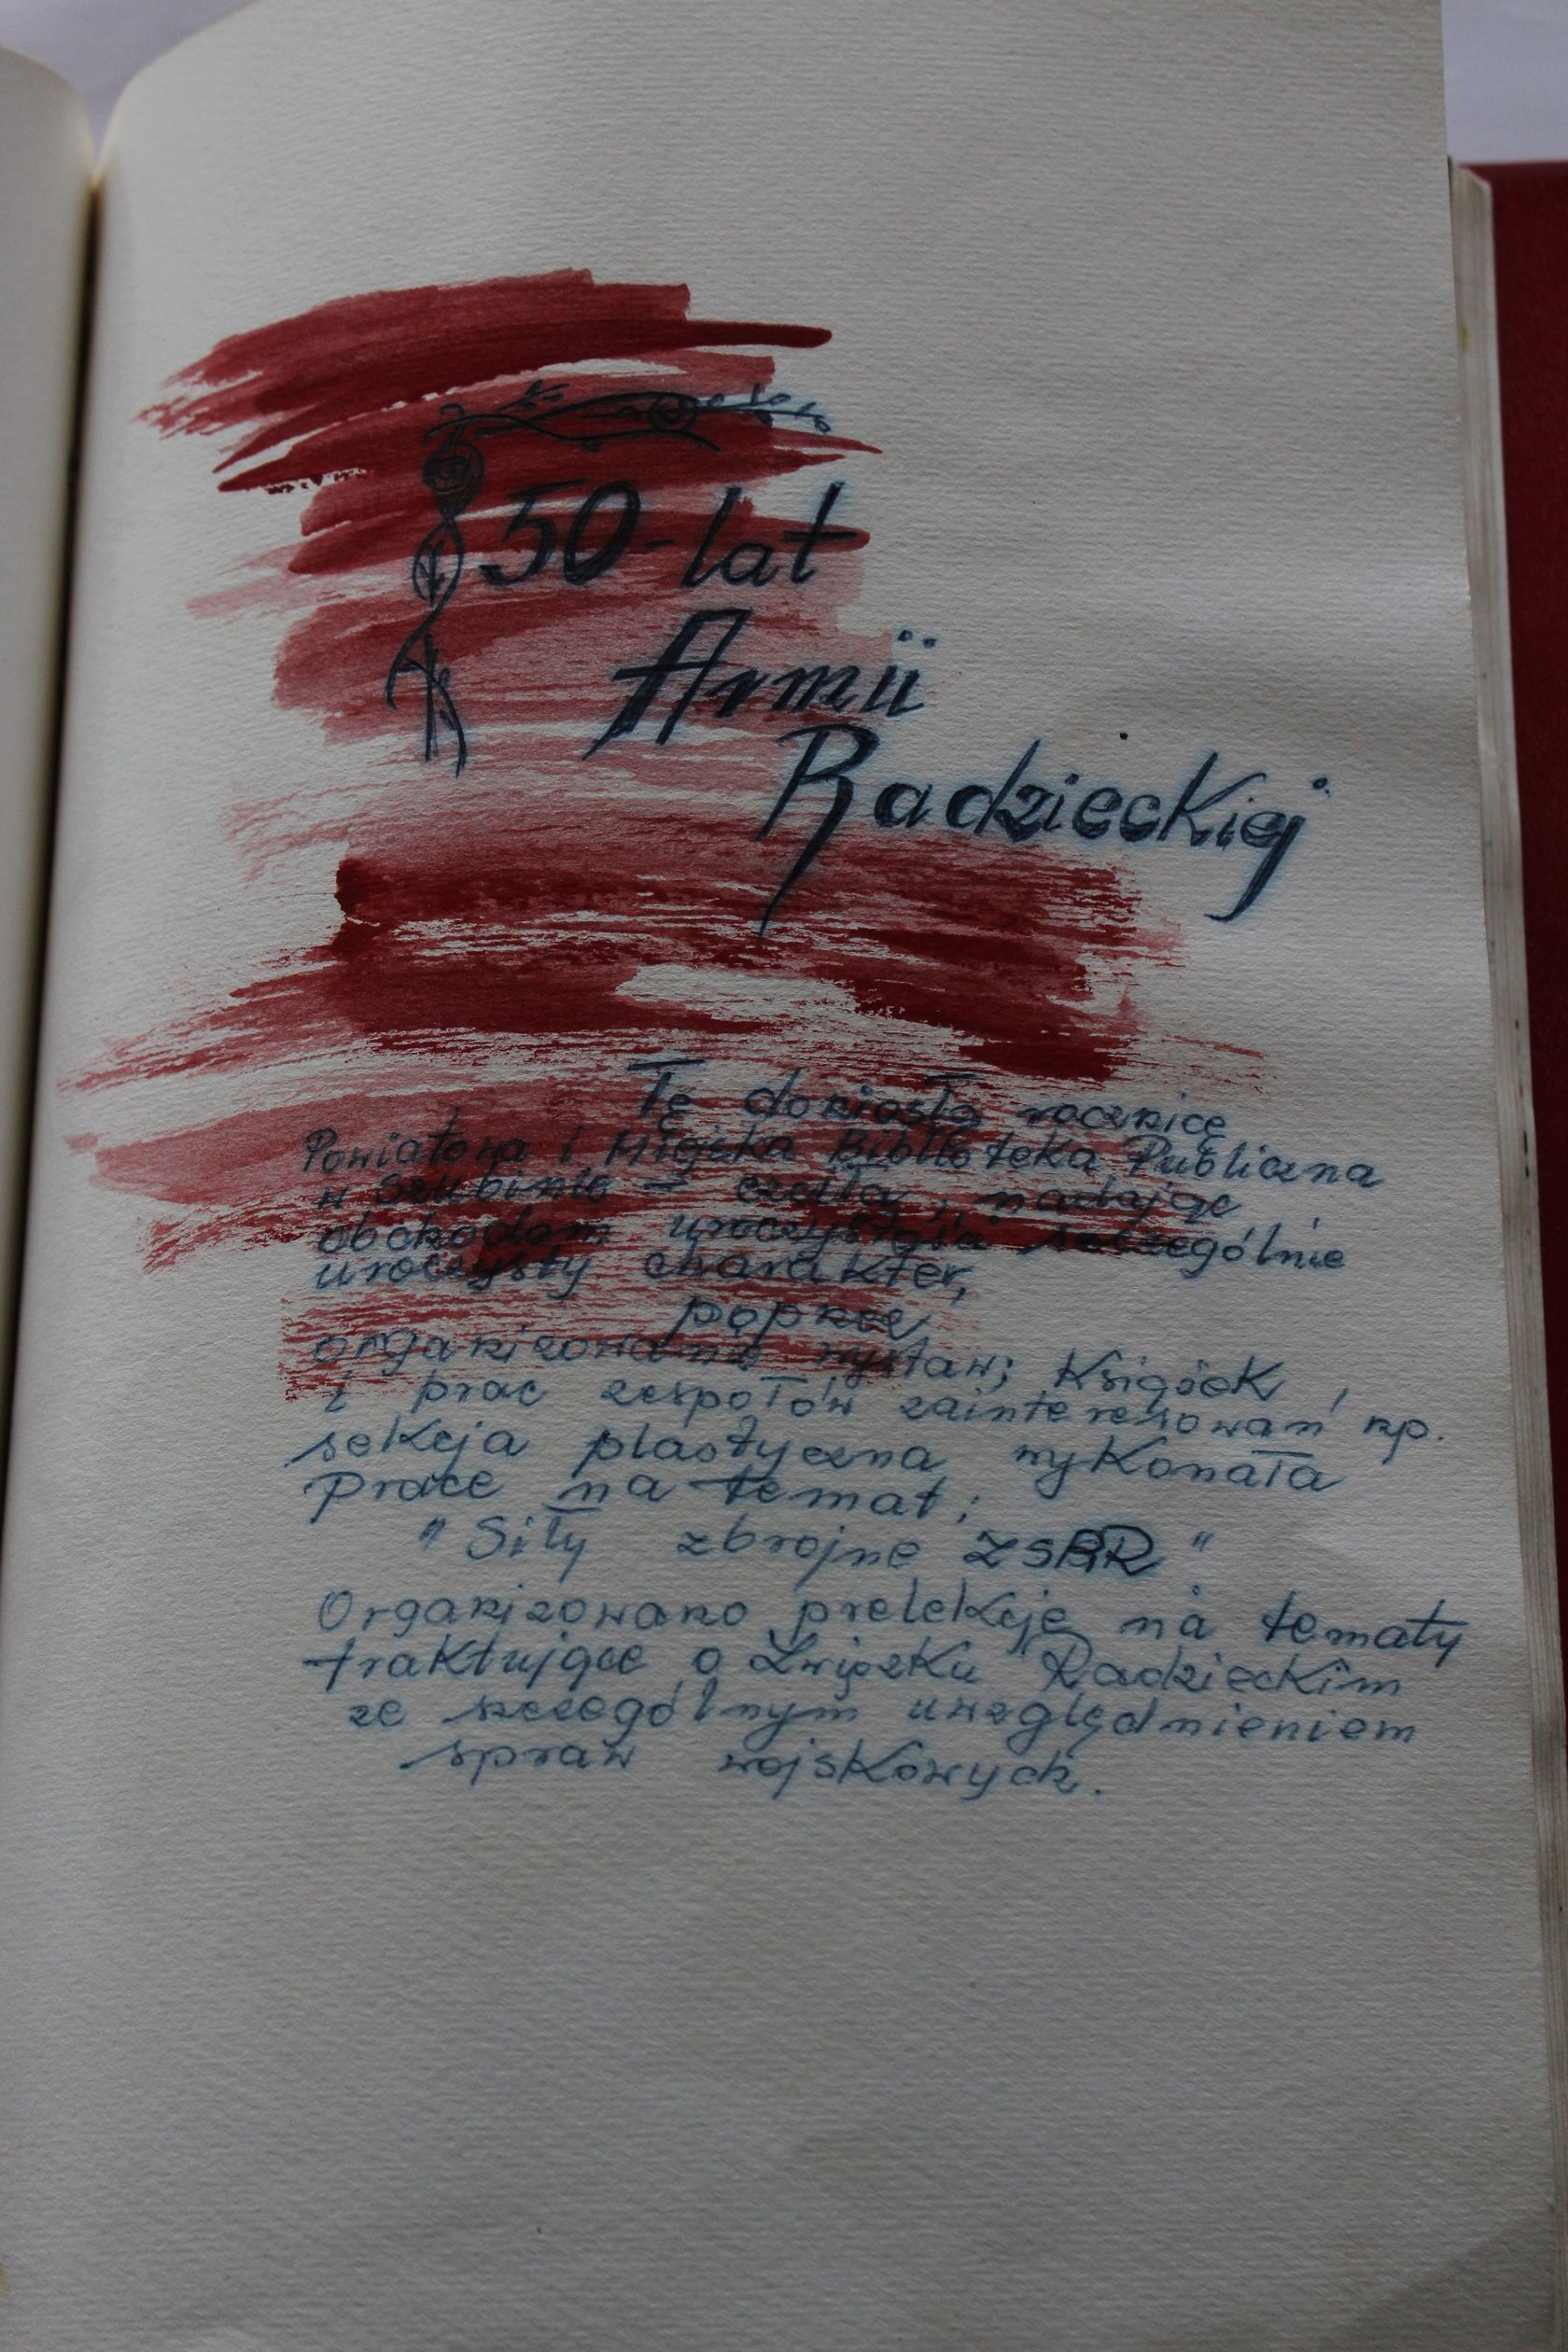 50-lat
Armii
Radzieckiej
Tę doniosłą rocznicę
Powiatowa i Miejska Biblioteka Publiczna
w Szubinie - czciła, nadając
obchodom uroczystości szczególnie
uroczysty charakter,
poprzez
organizowanie wystaw; Książek,
i prac zespołów zainteresowań np.
sekcja plastyczna wykonała
Prace na temat;
"Siły zbrojne ZSRR"
Organizowano prelekcje na tematy
traktujące o Związku Radzieckim
ze szczególnym uwzględnieniem
spraw wojskowych.